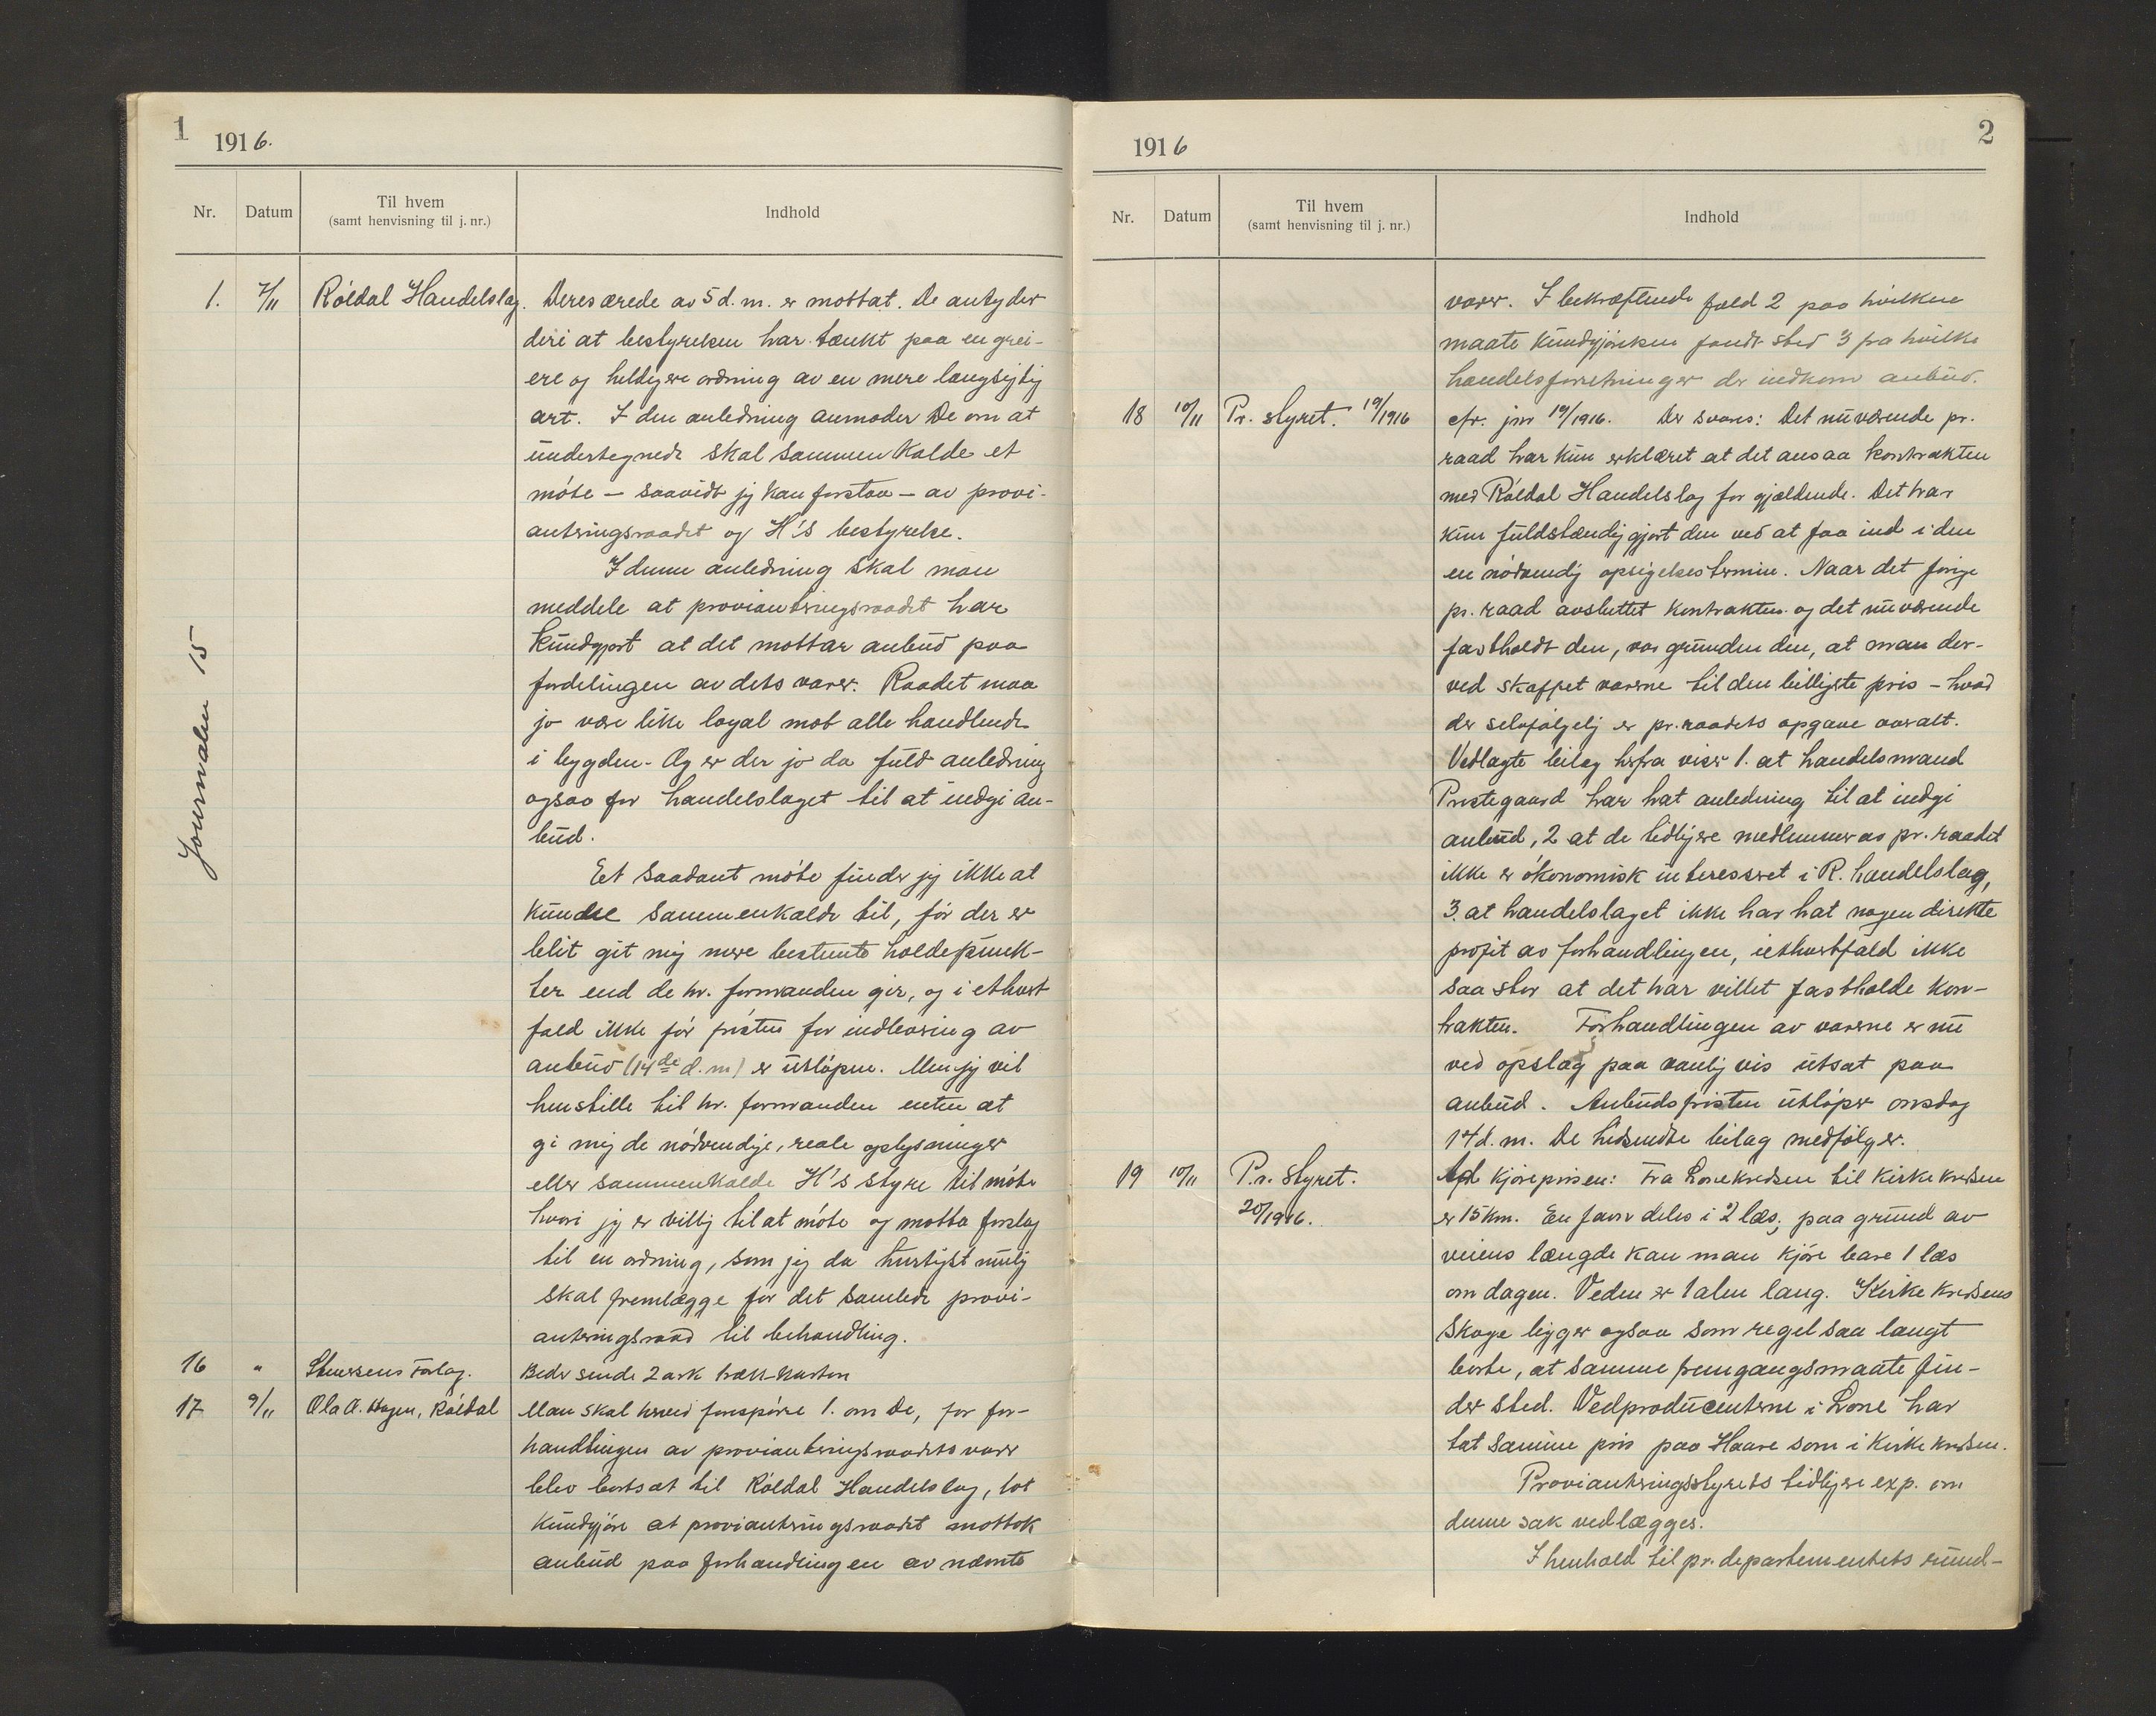 1
1916.
Nr.
Datum
Til hvem
(samt henvisning til j. nr.)
Indhold
Journalen 15
1.
7/11
Róldal Handelslag.
Deres ærede av 5 d. m. er mottat. De antyder
deri at bestyrelsen har tænkt paa en grei-
ere og heldigere ordning av en mere langsigtig
art. I den anledning anmoder De om at
undertegnede skal sammenkalde et
móte - saavidt jeg kan forstaa - av provi-
anteringsraadet og H's bestyrelse.
I denne anledning skal man
meddele at provianteringsraadet har
kundgjort at det mottar anbud paa
fordelingen av dets varer. Raadet maa
jo være like loyal mot alle handlende
i bygden. Og er der jo da fuld anledning
ogsaa for handelslaget til at indgi an-
bud.
Et saadant móte finder jeg ikke at
kunde sammenkalde til, fór der er
blit git mig mere bestemte holdepunk-
ter end de hr. formanden gir, og i ethvert
fald ikke fór fristen for indlevering av
anbud (14de d. m) er utlópen. Men jeg vil
henstille til hr. formanden enten at
gi mig de nódvendige, reale oplysninger
eller sammenkalde H's styre til móte
hvori jeg er villig til at móte og motta forslag
til en ordning, som jeg da hurtigst mulig
skal fremlægge for det samlede provi-
anteringsraad til behandling.
16
"
Stenersens Forlag.
Beder sende 2 ark træk-karton
17
9/11
Ola O. Hagen, Róldal
Man skal herved forespórre 1. om De, for for-
handlingen av provianteringsraadets varer
blev bortsat til Róldal Handelslag, lot
kundgjóre at provianteringsraadet mottok
anbud paa forhandlingen av nævnte
2
1916
Nr.
Datum
Til hvem
(samt henvisning til j. nr.)
Indhold
varer. I bekræftende fald 2 paa hvilken
maate kundgjórelsen fandt sted 3 fra hvilke
handelsforretninger der indkom anbud.
18
10/11
Pr. styret. 19/1916
cfr. jnr 19/1916. Der svares: Det nuværende pr.
raad har kun erklæret at det ansaa kontrakten
med Róldal Handelslag for gjældende. Det har
kun fuldstændiggjort den ved at faa ind i den
en nódvendig opsigelsestermin. Naar det forrige
pr. raad avsluttet kontrakten og det nuværende
fastholdt den, var grunden den, at man der-
ved skaffet varerne til den billigste pris - hvad
der selvfólgelig er pr. raadets opgave overalt.
Vedlagte bilag herfra viser 1. at handelsmand
Prestegaard har hat anledning til at indgi
anbud, 2 at de tidligere medlemmer av pr. raadet
ikke er ókonomisk interesseret i R. handelslag,
3. at handelslaget ikke har hat nogen direkte
profit av forhandlingen, iethvertfald ikke
saa stor at det har villet fastholde kon-
trakten. Forhandlingen av varerne er nu
ved opslag paa vanlig vis utsat paa
anbud. Anbudsfristen utlóper onsdag
14 d. m. De hidsendte bilag medfólger.
19
10/11
Pr. styret.
20/1916.
Ad kjórepisen: Fra Lonekredsen til Kirkekredsen
er 15 km. En favn deles i 2 læs; paa grund av
veiens længde kan man kjóre bare 1 læs
om dagen. Veden er 1 alen lang. Kirkekredsens
skoge ligger ogsaa som regel saa langt
borte, at samme fremgangsmaate fin-
der sted. Vedproducenterne i Lone har
tat samme pris paa Haare som i Kirkekredsen.
Provianteringsstyrets tidligere exp. om
denne sak vedlægges.
I henhold til pr. departementets rund-